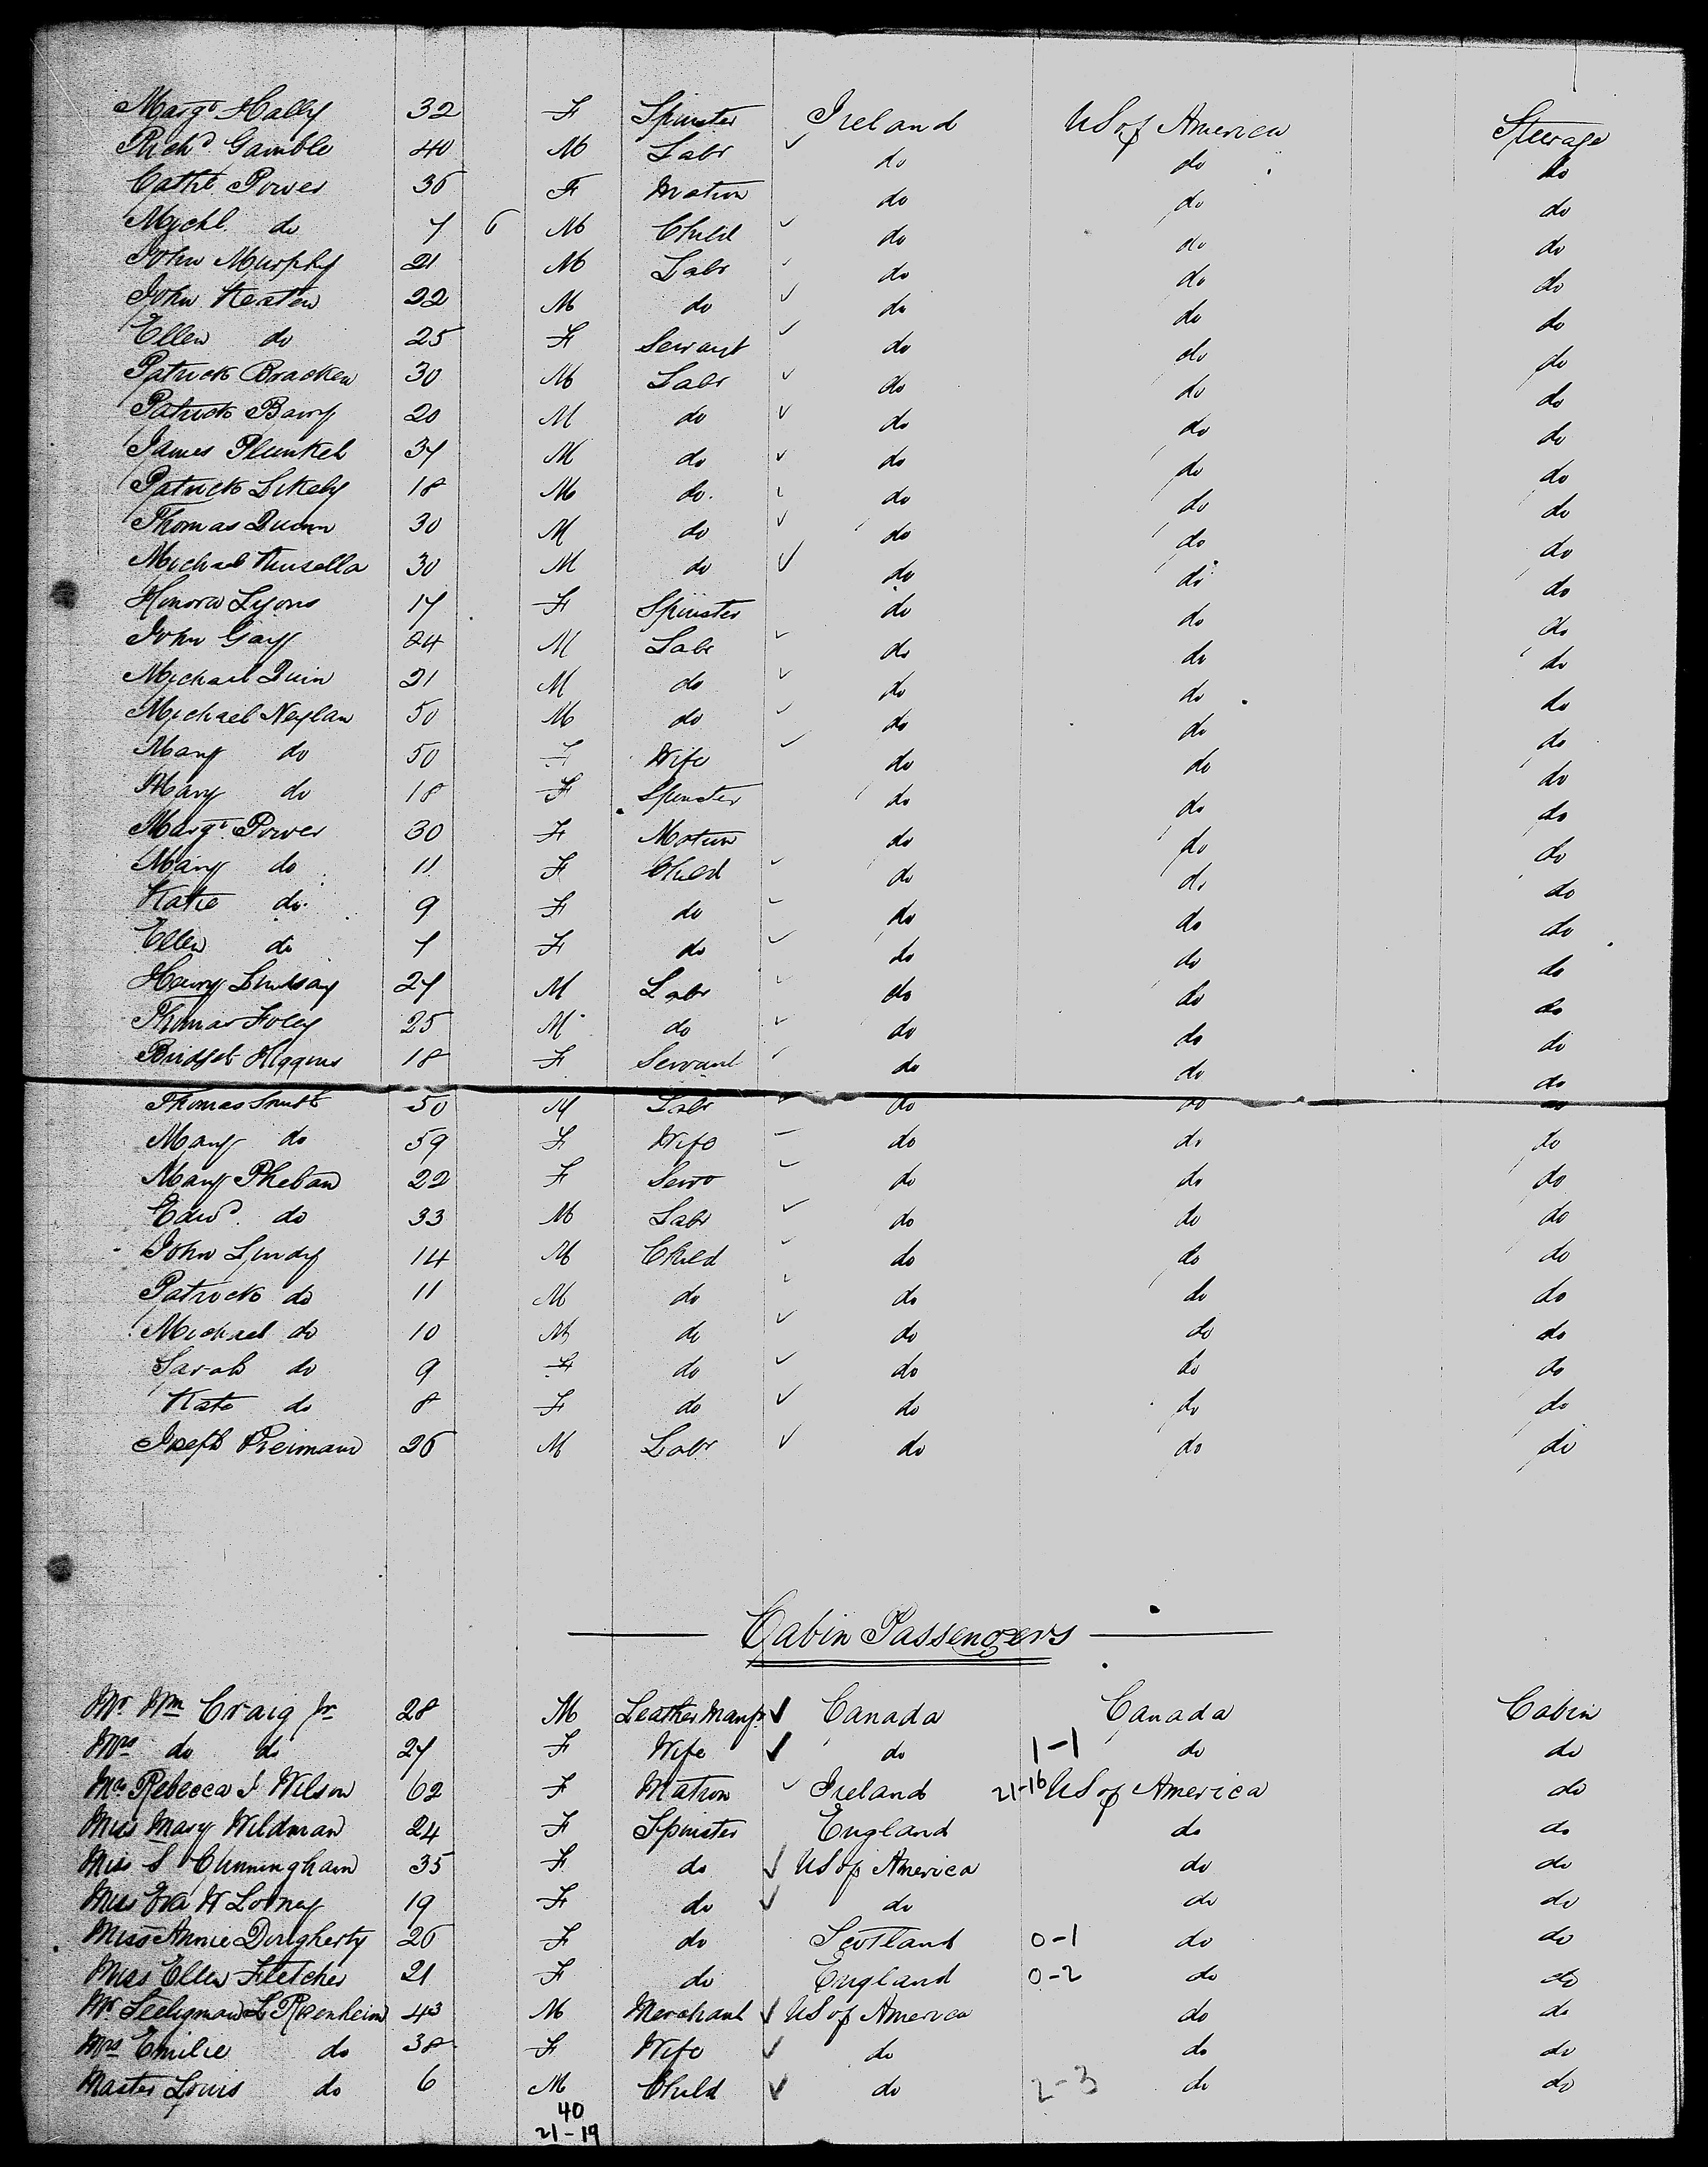 Margt Hally 32 F Spinster Ireland US of America Steerage
Richd Gamble 40 M Labr do do do
Cathe Power 36 F Matron do do do
Michl do 7 6 M Child do do do
John Murphy 21 M Labr do do do
John Keaten 22 M do do do do
Ellen do 25 F Servant do do do
Patrick Bracken 30 M Labr do do do
Patrick Barry 20 M do do do do
James Plunket 37 M do do do do
Patrick 18 M do do do do
Thomas Quinn 30 M do do do do
Michael Kinsella 30 M do do do do
Honora Lyons 17 F Spinster do do do
John Gary 24 M Labr do do do
Michael Quin 21 M do do do do
Michael Neylan 50 M do do do do
Mary do 50 F Wife do do do
Mary do 18 F Spinster do do do
Margt Power 30 F Matron do do do
Mary do 11 F Child do do do
Katie do 9 F do do do do
Ellen do 7 F do do do do
Henry Lindsay 27 M Labr do do do
Thomas Foley 25 M do do do do
Bridget Higgins 18 F Servant do do do
Thomas Smith 50 M Labr do do do
Mary do 59 F Wife do do do
Mary Phelan 22 F Servt do do do
Edwd do 33 M Labr do do do
John Lundy 14 M Child do do do
Patrick do 11 M do do do do
Michael do 10 M do do do do
Sarah do 9 F do do do do
Kate do 8 F do do do do
Joseph 26 M Labr do do do
Cabin Passengers
Mr Wm Craig Jr 28 M Leather Manfr Canada Canada Cabin
Mrs do do 27 F Wife do 1-1 do do
Mrs Rebecca J Wilson 62 F Matron Ireland 21-16 US of America do
Miss Mary Wildman 24 F Spinster England do do
Miss S Cunningham 35 F do US of America do do
Miss Eva W 19 F do do do do
Miss Annie Dougherty 26 F do Scotland 0-1 do do
Miss Ellen Fletcher 21 F do England 0-2 do do
Mr Seeligman L Rosenheim 43 M Merchant US of America do do
Mrs Emilie do 38 F Wife do do do
Master Louis do 6 M Child do 2-3 do do
40
21-19